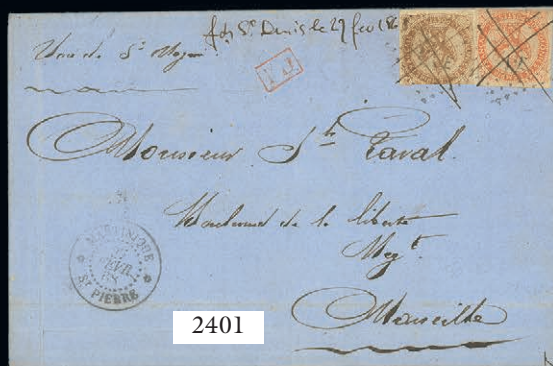 St Denis le 29
Voie de St
P.D.
Monsieur St Laval.
Boulevard de la liberté
Negt.
Marseille
MARTINIQUE
FEVR.
68
St PIERRE
2401